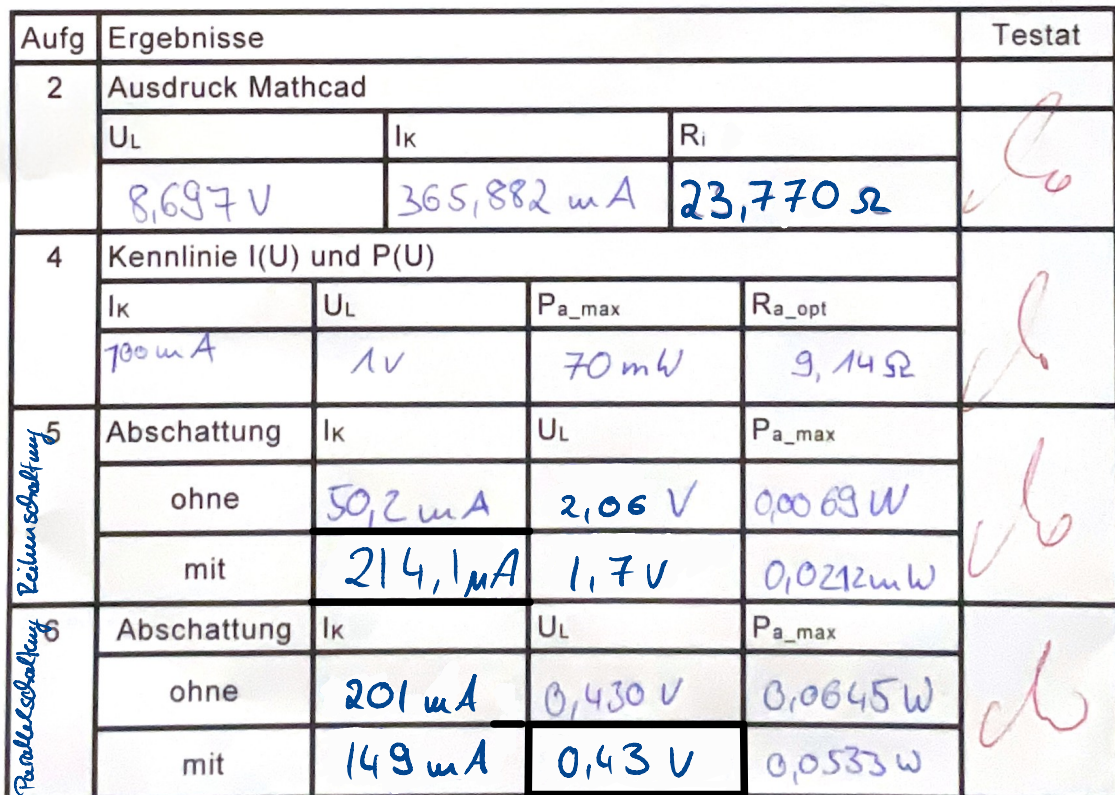 Aufg Ergebnisse Testat
2 Ausdruck Mathcad
UL IK Ri
8,697 V 365,882 mA 23,770 Ω
4 Kennlinie I(U) und P(U)
IK UL Pa_max Ra_opt
100 mA 1V 70 mW 9,14 Ω
Reihenschaltung
5 Abschattung IK UL Pa_max
ohne 50,2 mA 2,06 V 0,0069 W
mit 214,1 µA 1,7 V 0,0212 mW
Parallelschaltung
6 Abschattung IK UL Pa_max
ohne 201 mA 0,430 V 0,0645 W
mit 149 mA 0,43 V 0,0533 W